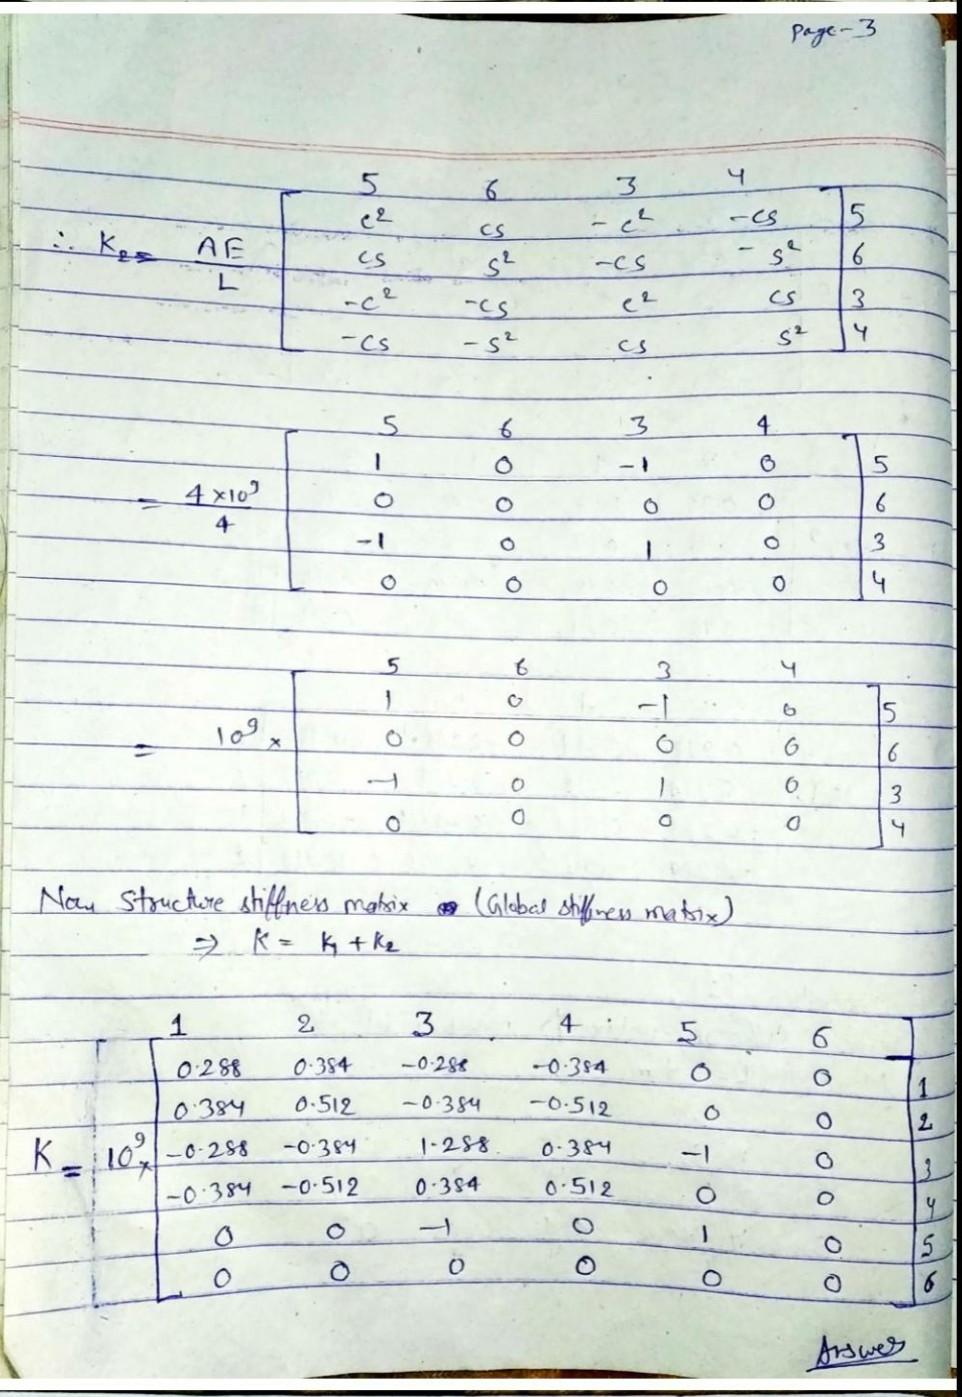 Page-3
5 6 3 4
c² cs -c² -cs 5
∴ K₂ = AE/L cs s² -cs -s² 6
-c² -cs c² cs 3
-cs -s² cs s² 4
5 6 3 4
1 0 -1 0 5
= 4×10⁹/4 0 0 0 0 6
-1 0 1 0 3
0 0 0 0 4
5 6 3 4
1 0 -1 0 5
= 10⁹ × 0 0 0 0 6
-1 0 1 0 3
0 0 0 0 4
Now Structure stiffness matrix (Global stiffness matrix)
⇒ K = K₁ + K₂
1 2 3 4 5 6
0.288 0.384 -0.288 -0.384 0 0 1
0.384 0.512 -0.384 -0.512 0 0 2
K = 10⁹ × -0.288 -0.384 1.288 0.384 -1 0 3
-0.384 -0.512 0.384 0.512 0 0 4
0 0 -1 0 1 0 5
0 0 0 0 0 0 6
Answer